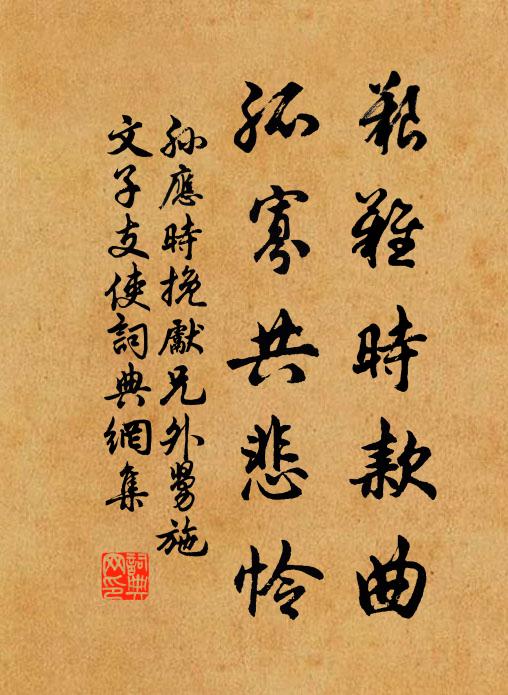 艱難時款曲
孤寡共悲怜
孫應時挽獻兄外舅施
文子支使詞典網集
詞典
网印